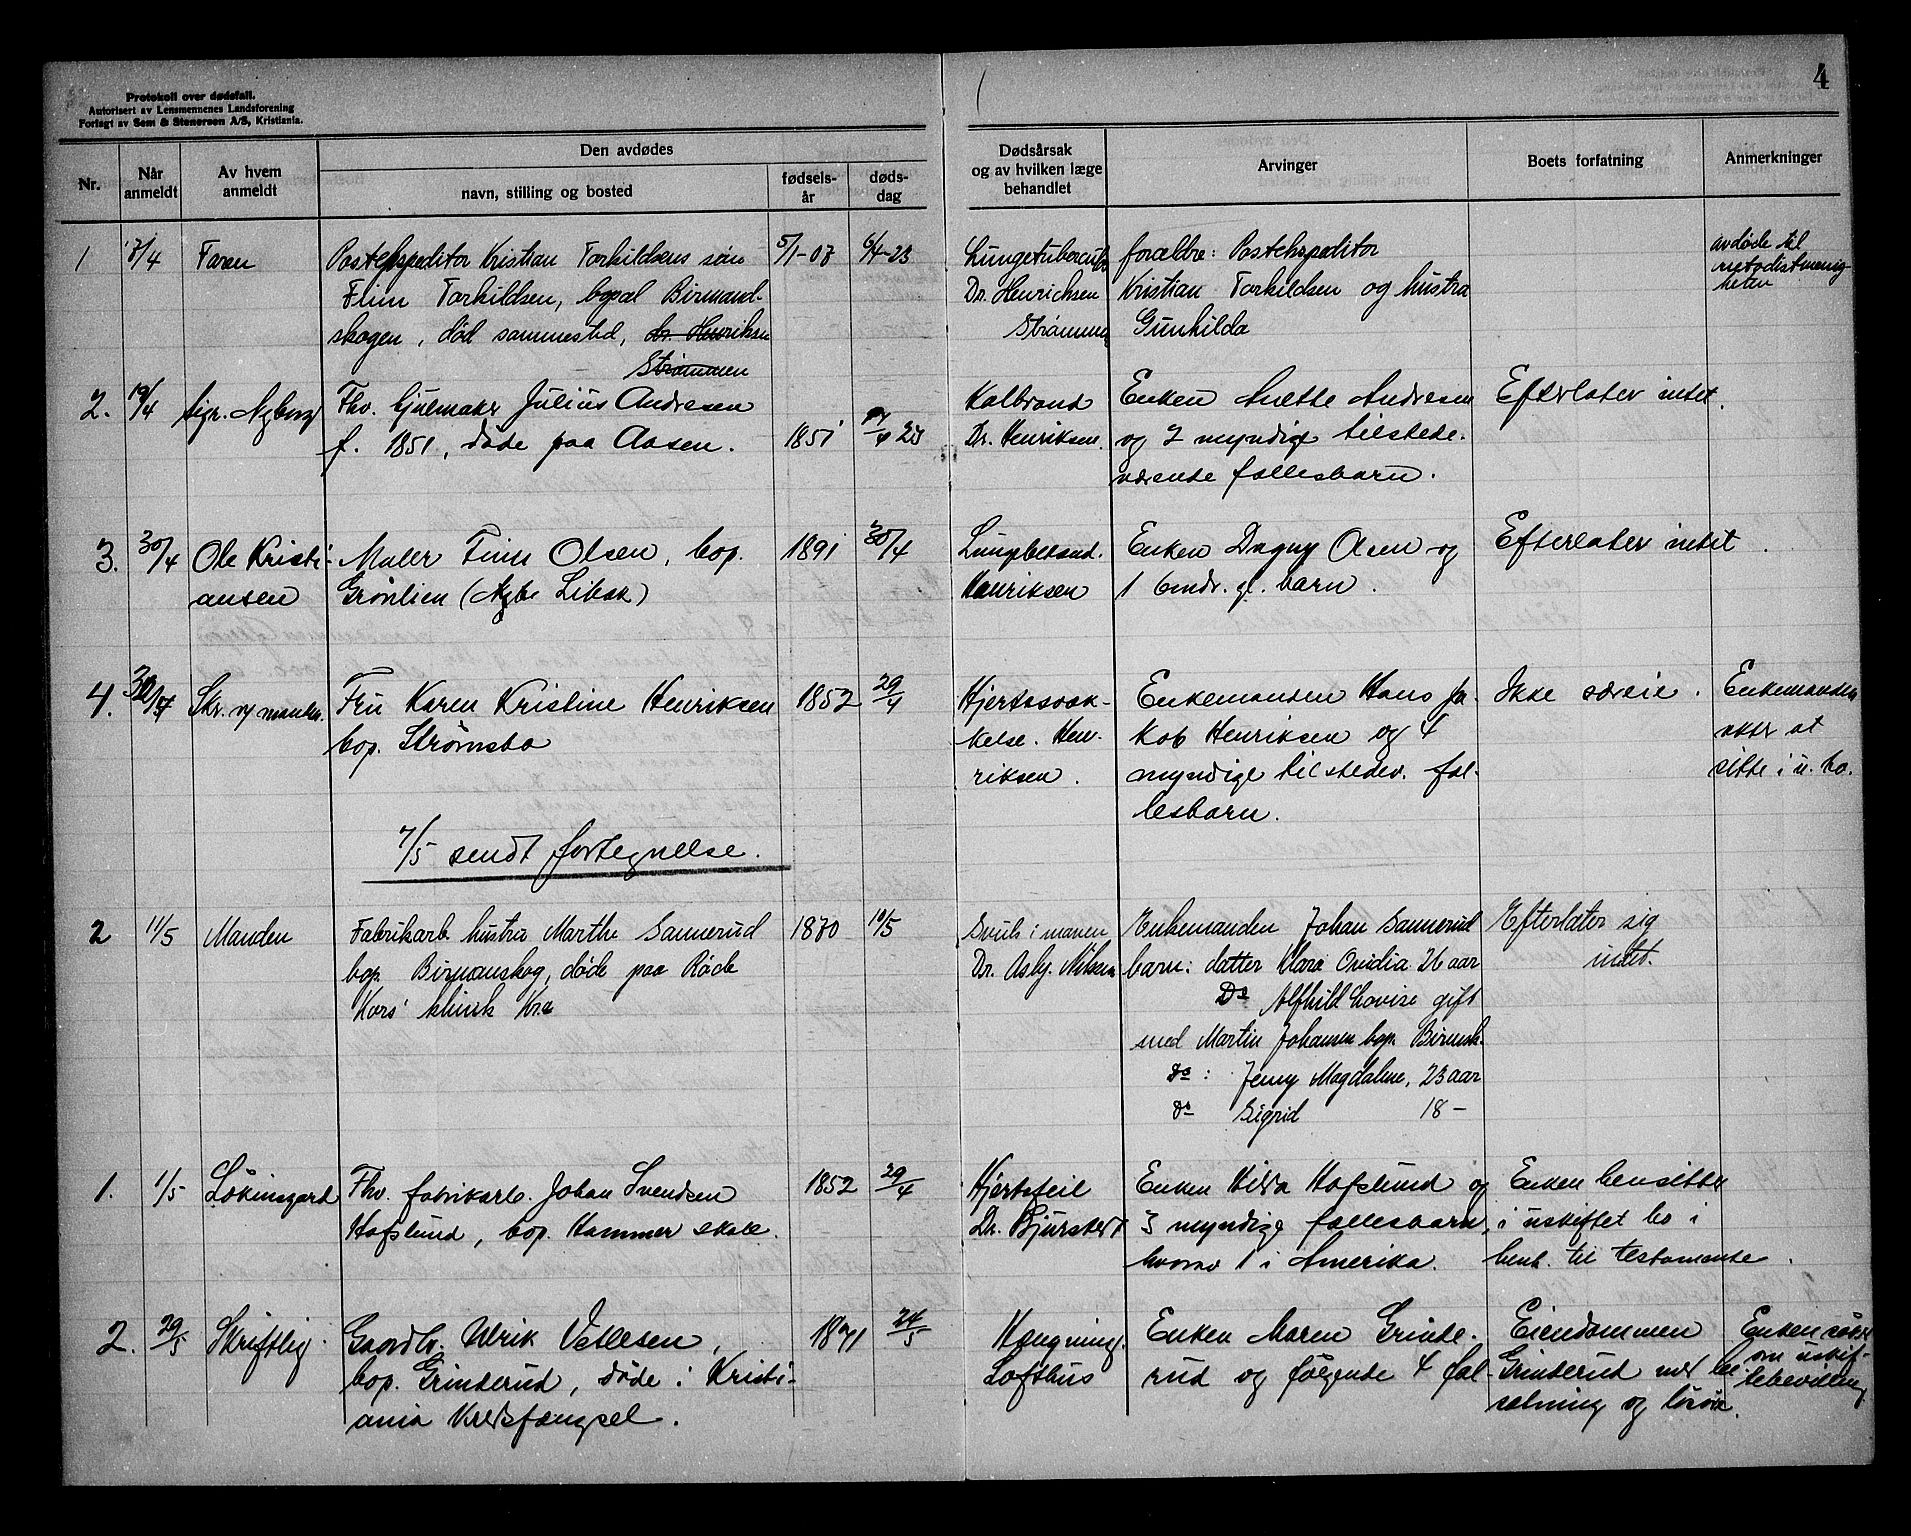 4
Protokoll over dødsfall.
Autorisert av Lensmennenes Landsforening
Forlagt av Sem & Stenersen A/S, Kristiania.
Nr.
Når anmeldt
Av hvem anmeldt
Den avdødes
navn, stilling og bosted
fødsels-år
døds-dag
Dødsårsak og av hvilken læge behandlet
Arvinger
Boets forfatning
Anmerkninger
1
7/4
Faren
Postekspeditor Kristian Torkildsens søn
Finn Torkildsen, bopæl Birmand-
skogen, død sammested, dr. Henriksen
Strømmen
5/1-07
6/4-23
Lungetubercul.
Dr. Henrichsen
Strømmen
forældre: Postekspeditor
Kristian Torkildsen og hustru
Gunhilda
avdøde til
metodistmenig-
heten
2.
19/4
Sigr. Nyborg
Fhv. hjulmaker Julius Andresen
f. 1851, døde paa Aasen.
1851
Kolbrand
Dr. Henriksen.
Enken Anette Andresen
og 2 myndige tilstede-
værende fællesbarn.
Efterlater intet.
3.
30/4
Ole Kristi-
ansen
Maler Finn Olsen, bop.
Grønlien
1891
30/4
Henriksen
Enken Dagny Olsen og
1 6mdr. gl. barn.
Efterlater intet.
4.
30/4
Fru Karen Kristine Henriksen
bop. Strømsbo
1852
29/4
Hjertesvæk-
kelse. Hen-
riksen.
Enkemanden Hans Ja-
kob Henriksen og 4
myndige tilstedev. fæl-
lesbarn.
Ikke særeie.
Enkemanden
akter at
sitte i u. bo.
7/5 sendt fortegnelse.
2
11/5
Manden
Fabrikarb. hustru Marthe Sannerud
bop. Birmanskog, døde paa Røde
Kors' klinik Kr.a
1870
10/5
Svulst i maven
Dr. Asbj. Nilsen
Enkemanden Johan Sannerud
barn: datter Klara Ovidia 26 aar
Do Alfhild Lovise gift
med Martin Johansen bop. Birmsk.
do: Jenny Magdalene, 23 aar
do Sigrid 18 –
Efterlater sig
intet.
1.
1/5
Løkinsgard
Fhv. fabrikarb. Johan Svendsen
Hofslund, bop. Hammer skole.
1852
29/4
Hjertefeil
Dr. Bjurstedt
Enken Hilda Hofslund og
3 myndige fællesbarn,
hvorav 1 i Amerika.
Enken hensitter
i uskiftet bo i
henh. til testamente.
2.
29/5
Skriftlig
Gaardbr. Ulrik Vetlesen,
bop. Grinderud, døde i Kristi-
ania Kredsfængsel.
1871
24/5
Hængning.
Lofthus
Enken Maren Grinde-
rud og følgende 4 fæl-
Eiendommen
Grinderud med be-
sætning og løsøre.
Enken søker
om uskif-
tebevilling